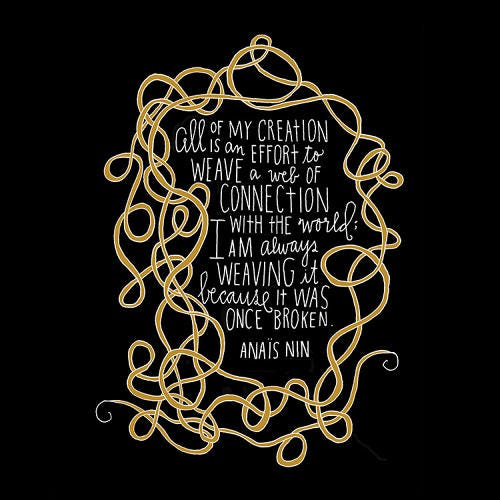 All OF MY CREATION
IS an EFFORT to
WEAVE a web OF
CONNECTION
WITH THE world;
I AM always
WEAVING it
because IT WAS
ONCE BROKEN.
ANAÏS NIN